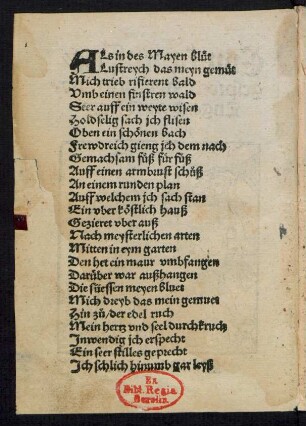 ALs in des Mayen blüt
Lustreych das meyn gemüt
Mich trieb rifierent bald
Vmb einen finstren wald
Seer auff ein weyte wisen
Holdselig sach ich flisen
Oben ein schönen bach
Frewdreich gieng ich dem nach
Gemachsam füß für füß
Auff einen armbrust schüß
An einem runden plan
Auff welchem ich sach stan
Ein vber köstlich hauß
Gezieret vber auß
Nach meysterlichen arten
Mitten in eym garten
Den het ein maur vmbfangen
Darüber war außhangen
Die süessen meyen bluet
Mich dreyb das mein gemuet
Hin zů/der edel ruch
Mein hertz vnd seel durchkruch
Inwendig ich erspecht
Ein seer stilles geprecht
Ich schlich hinumb gar leyß
Ex
Bibl. Regia
Berolin.